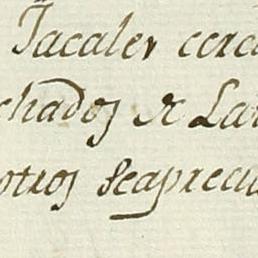 Jacales cerc
chados de Lar
otros se aprecia